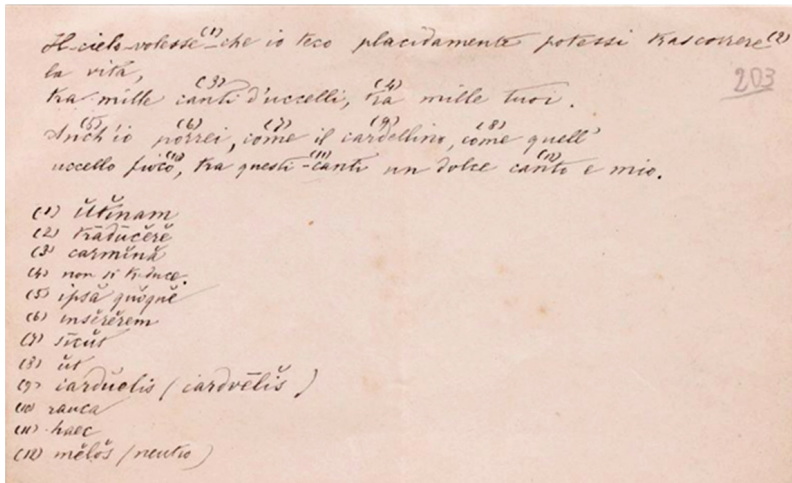 Il cielo volesse (1) che io teco placidamente potessi trascorrere (2)
la vita,
203
tra mille canti (3) d'uccelli, tra (4) mille tuoi.
Anch'io (5) porrei (6), come (7) il cardellino (9), come (8) quell'
uccello fioco (10), tra questi (11) canti un dolce canto (12) e mio.
(1) ŭtĭnam
(2) trādūcĕrĕ
(3) carmĭnă
(4) non si traduce.
(5) ipsă quŏquĕ
(6) insĕrĕrem
(7) sīcŭt
(8) ŭt
(9) carduĕlis (cardvēlĭs)
(10) rauca
(11) haec
(12) mĕlŏs (neutro)